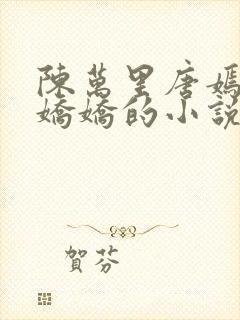 陳萬里唐嫣
嬌嬌的小說
賀芬